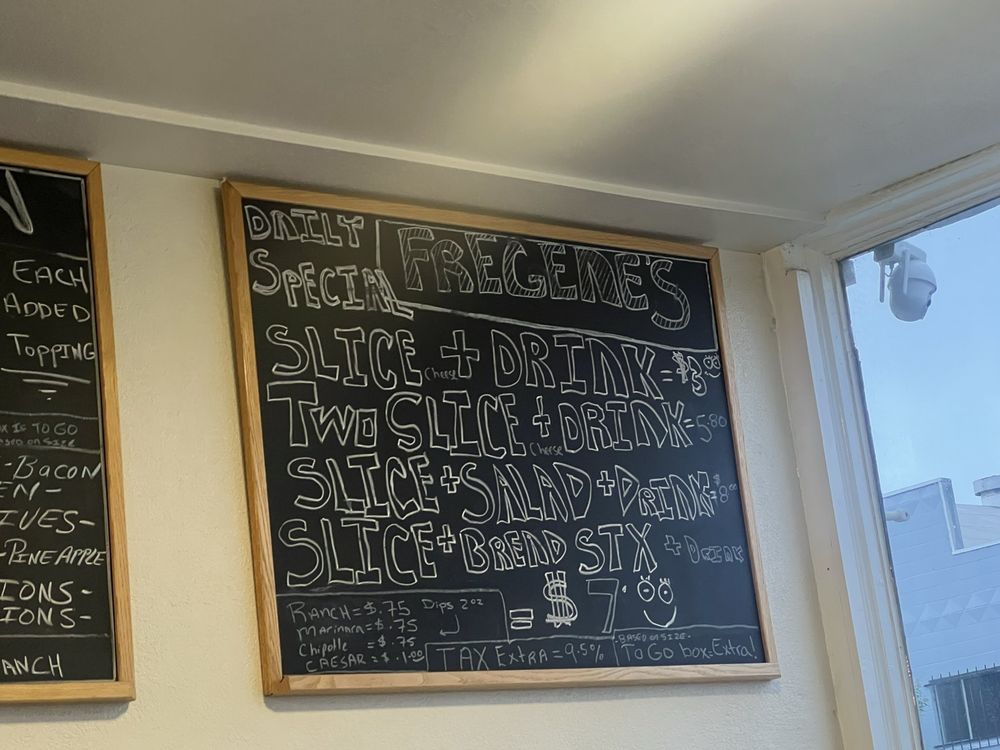 EACH
ADDED
TOPPING
IS TO GO
BASED ON SIZE
-BACON
EN-
IVES-
-PINEAPPLE
IONS-
IONS-
ANCH
DAILY
SPECIAL
FREGENE'S
SLICE Cheese + DRINK = $3
TWO SLICE Cheese + DRINK = 5.80
SLICE + SALAD + DRINK = $8.00
SLICE + BREAD STX + DRINK
= $7
RANCH = $.75 Dips 2oz
Marinara = $.75
Chipolle = $.75
CAESAR = $1.00
TAX ExtRA = 9.5%
BASED ON SIZE.
TO GO box = Extra!